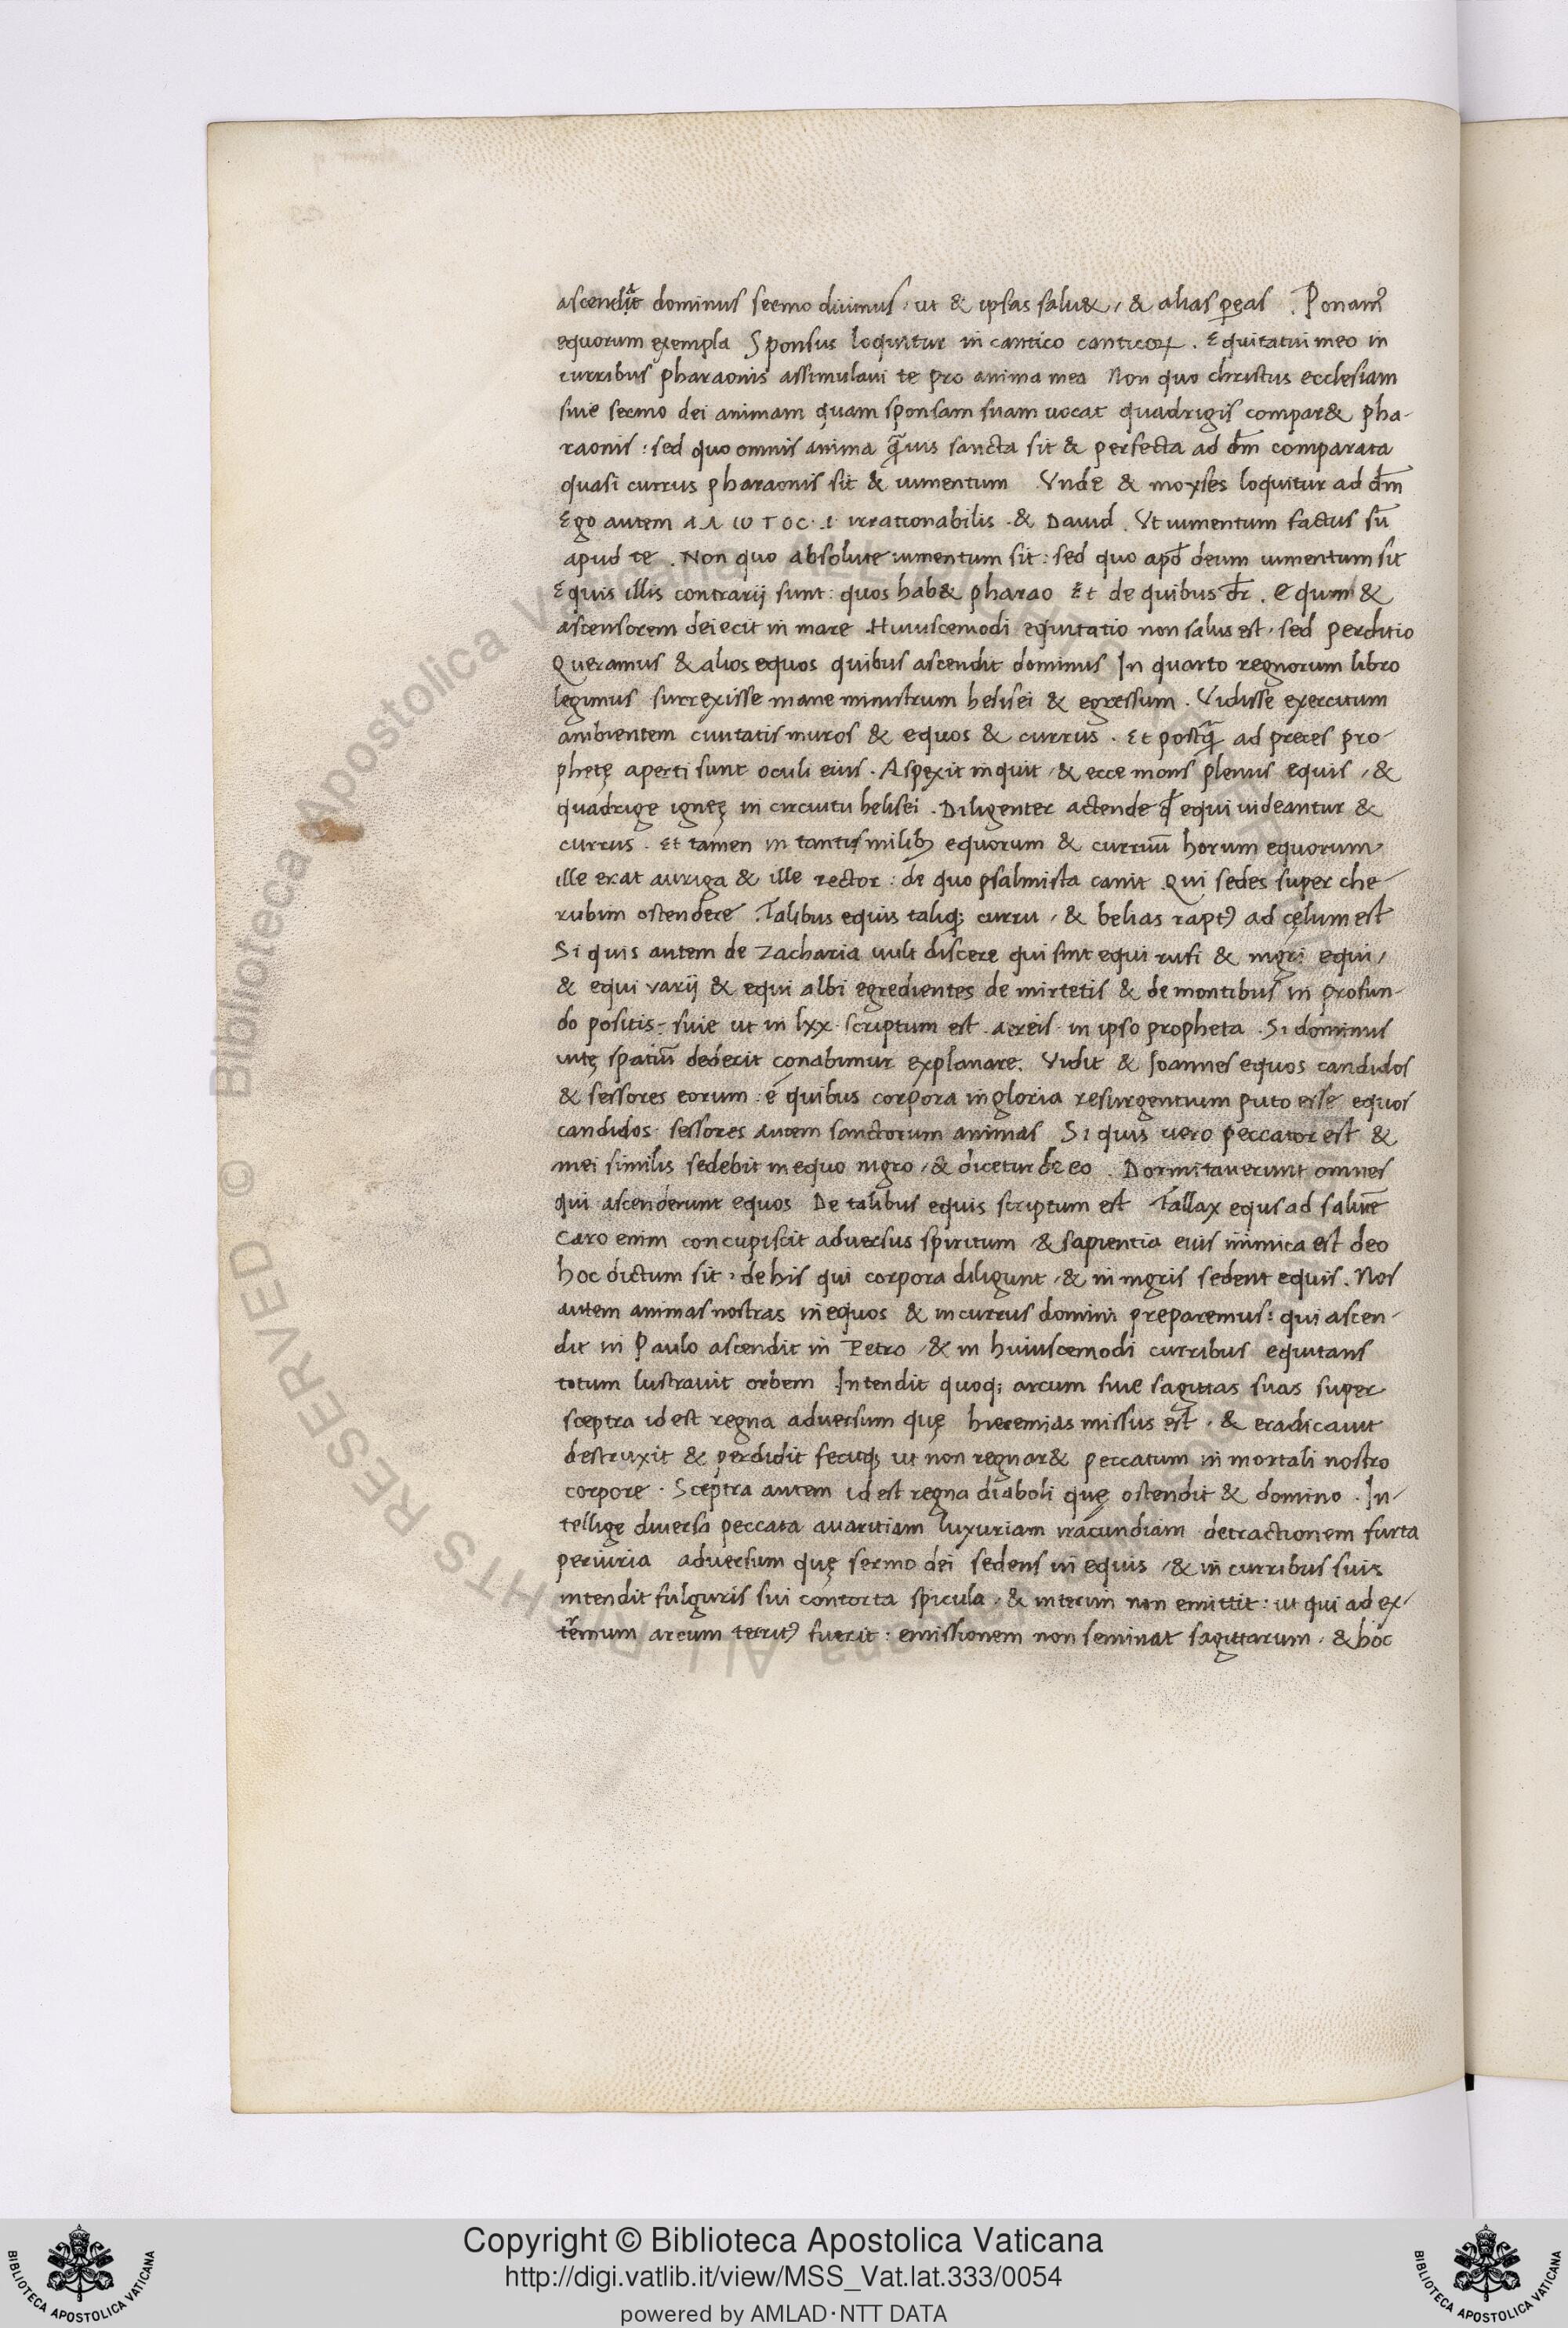 ascendat dominus sermo diuinus, ut & ipsas salu&, & alias p̱eas. Ponamꝰ
equorum exempla Sponsus loquitur in cantico canticoꝝ. Equitatui meo in
curribus pharaonis assimulaui te pro anima mea Non quo christus ecclesiam
siue sermo dei animam quam sponsam suam uocat quadrigis compar& pha-
raonis: sed quo omnis anima q̄uis sancta sit & perfecta ad dm̄ comparata
quasi currus pharaonis sit & iumentum Vnde & moyses loquitur ad dm̄
Ego autem ΑΛΩΓΟC .i. irrationabilis. & Dauid. Vt iumentum factus sū
apud te. Non quo absolute iumentum sit: sed quo apd̄ deum iumentum sit
Equis illis contrarij sunt: quos hab& pharao Et de quibus dr̄. Equum &
ascensorem deiecit in mare Huiuscemodi equitatio non salus est, sed perditio
Queramus & alios equos quibus ascendit dominus In quarto regnorum libro
legimus surrexisse mane ministrum helisei & egressum. Vidisse exercitum
ambientem ciuitatis muros & equos & currus. Et postq̄ ad preces pro-
phetę aperti sunt oculi eius. Aspexit inquit, & ecce mons plenus equis, &
quadrige ignęę in circuitu helisei. Diligenter actende qd̄ equi uideantur &
currus. Et tamen in tantis milibꝫ equorum & curruū horum equorum
ille erat auriga & ille rector: de quo psalmista canit. Qui sedes super che-
rubim ostendere. Talibus equis taliqꝫ curru, & helias raptꝰ ad cęlum est
Si quis autem de Zacharia uult discere qui sint equi rufi & nigri equi,
& equi varij & equi albi egredientes de mirtetis & de montibus in profun-
do positis: siue ut in lxx scriptum est aereis in ipso propheta. Si dominus
uitę spatiū dederit conabimur explanare. Vidit & Joannes equos candidos
& sessores eorum: e quibus corpora in gloria resurgentium puto esse equos
candidos sessores autem sanctorum animas Si quis uero peccator est &
mei similis sedebit in equo nigro, & dicetur de eo. Dormitauerunt omnes
qui ascenderunt equos De talibus equis scriptum est Fallax equs ad salutē
Caro enim concupiscit aduersus spiritum & sapientia eius inimica est deo
hoc dictum sit, de his qui corpora diligunt, & in nigris sedent equis. Nos
autem animas nostras in equos & in currus domini preparemus: qui ascen-
dit in Paulo ascendit in Petro, & in huiuscemodi curribus equitans
totum lustrauit orbem Intendit quoqꝫ arcum siue sagittas suas super
sceptra id est regna aduersum quę hieremias missus est, & eradicauit
destruxit & perdidit fecitqꝫ ut non regnar& peccatum in mortali nostro
corpore. Sceptra autem id est regna diaboli quę ostendit & domino. In-
tellige diuersa peccata auaritiam luxuriam iracundiam detractionem furta
periuria aduersum quę sermo dei sedens in equis, & in curribus suis
intendit fulguris sui contorta spicula, & interim non emittit: ut qui ad ex-
trēmum arcum territꝰ fuerit: emissionem non seminat sagittarum, & hoc
Copyright © Biblioteca Apostolica Vaticana
http://digi.vatlib.it/view/MSS_Vat.lat.333/0054
powered by AMLAD·NTT DATA
BIBLIOTECA APOSTOLICA VATICANA
BIBLIOTECA APOSTOLICA VATICANA